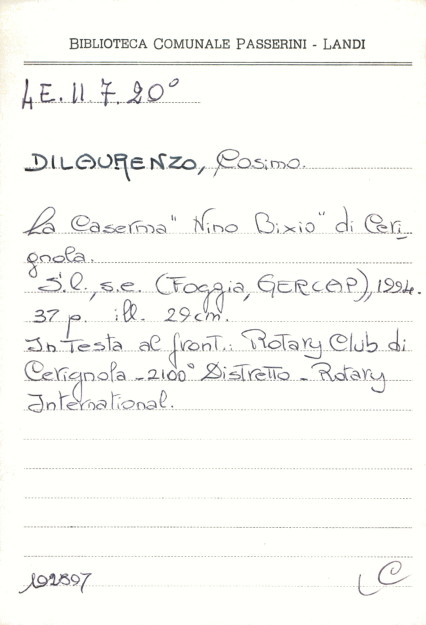 BIBLIOTECA COMUNALE PASSERINI - LANDI
4E.II.7.20°
DILAURENZO, Cosimo.
La Caserma "Nino Bixio" di Ceri_
gnola.
S.l., s.e. (Foggia, GERCAP), 1994.
37 p. ill. 29 cm.
In Testa al front.: Rotary Club di
Cerignola - 2100° Distretto - Rotary
International.
192897